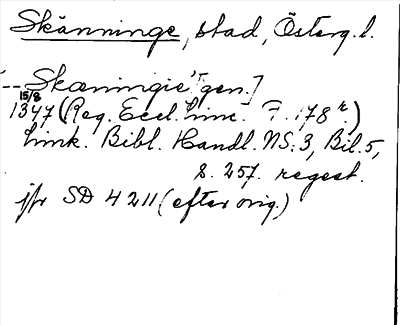 Skänninge, stad, Österg. l.
--- Skæningie [gen.]
15/8
1347 (Reg. Eccl. Linc. F. 178 r.)
Link. Bibl. Handl. NS. 3, Bil. 5,
s. 257. regest.
jfr SD 4 211 (efter orig.)